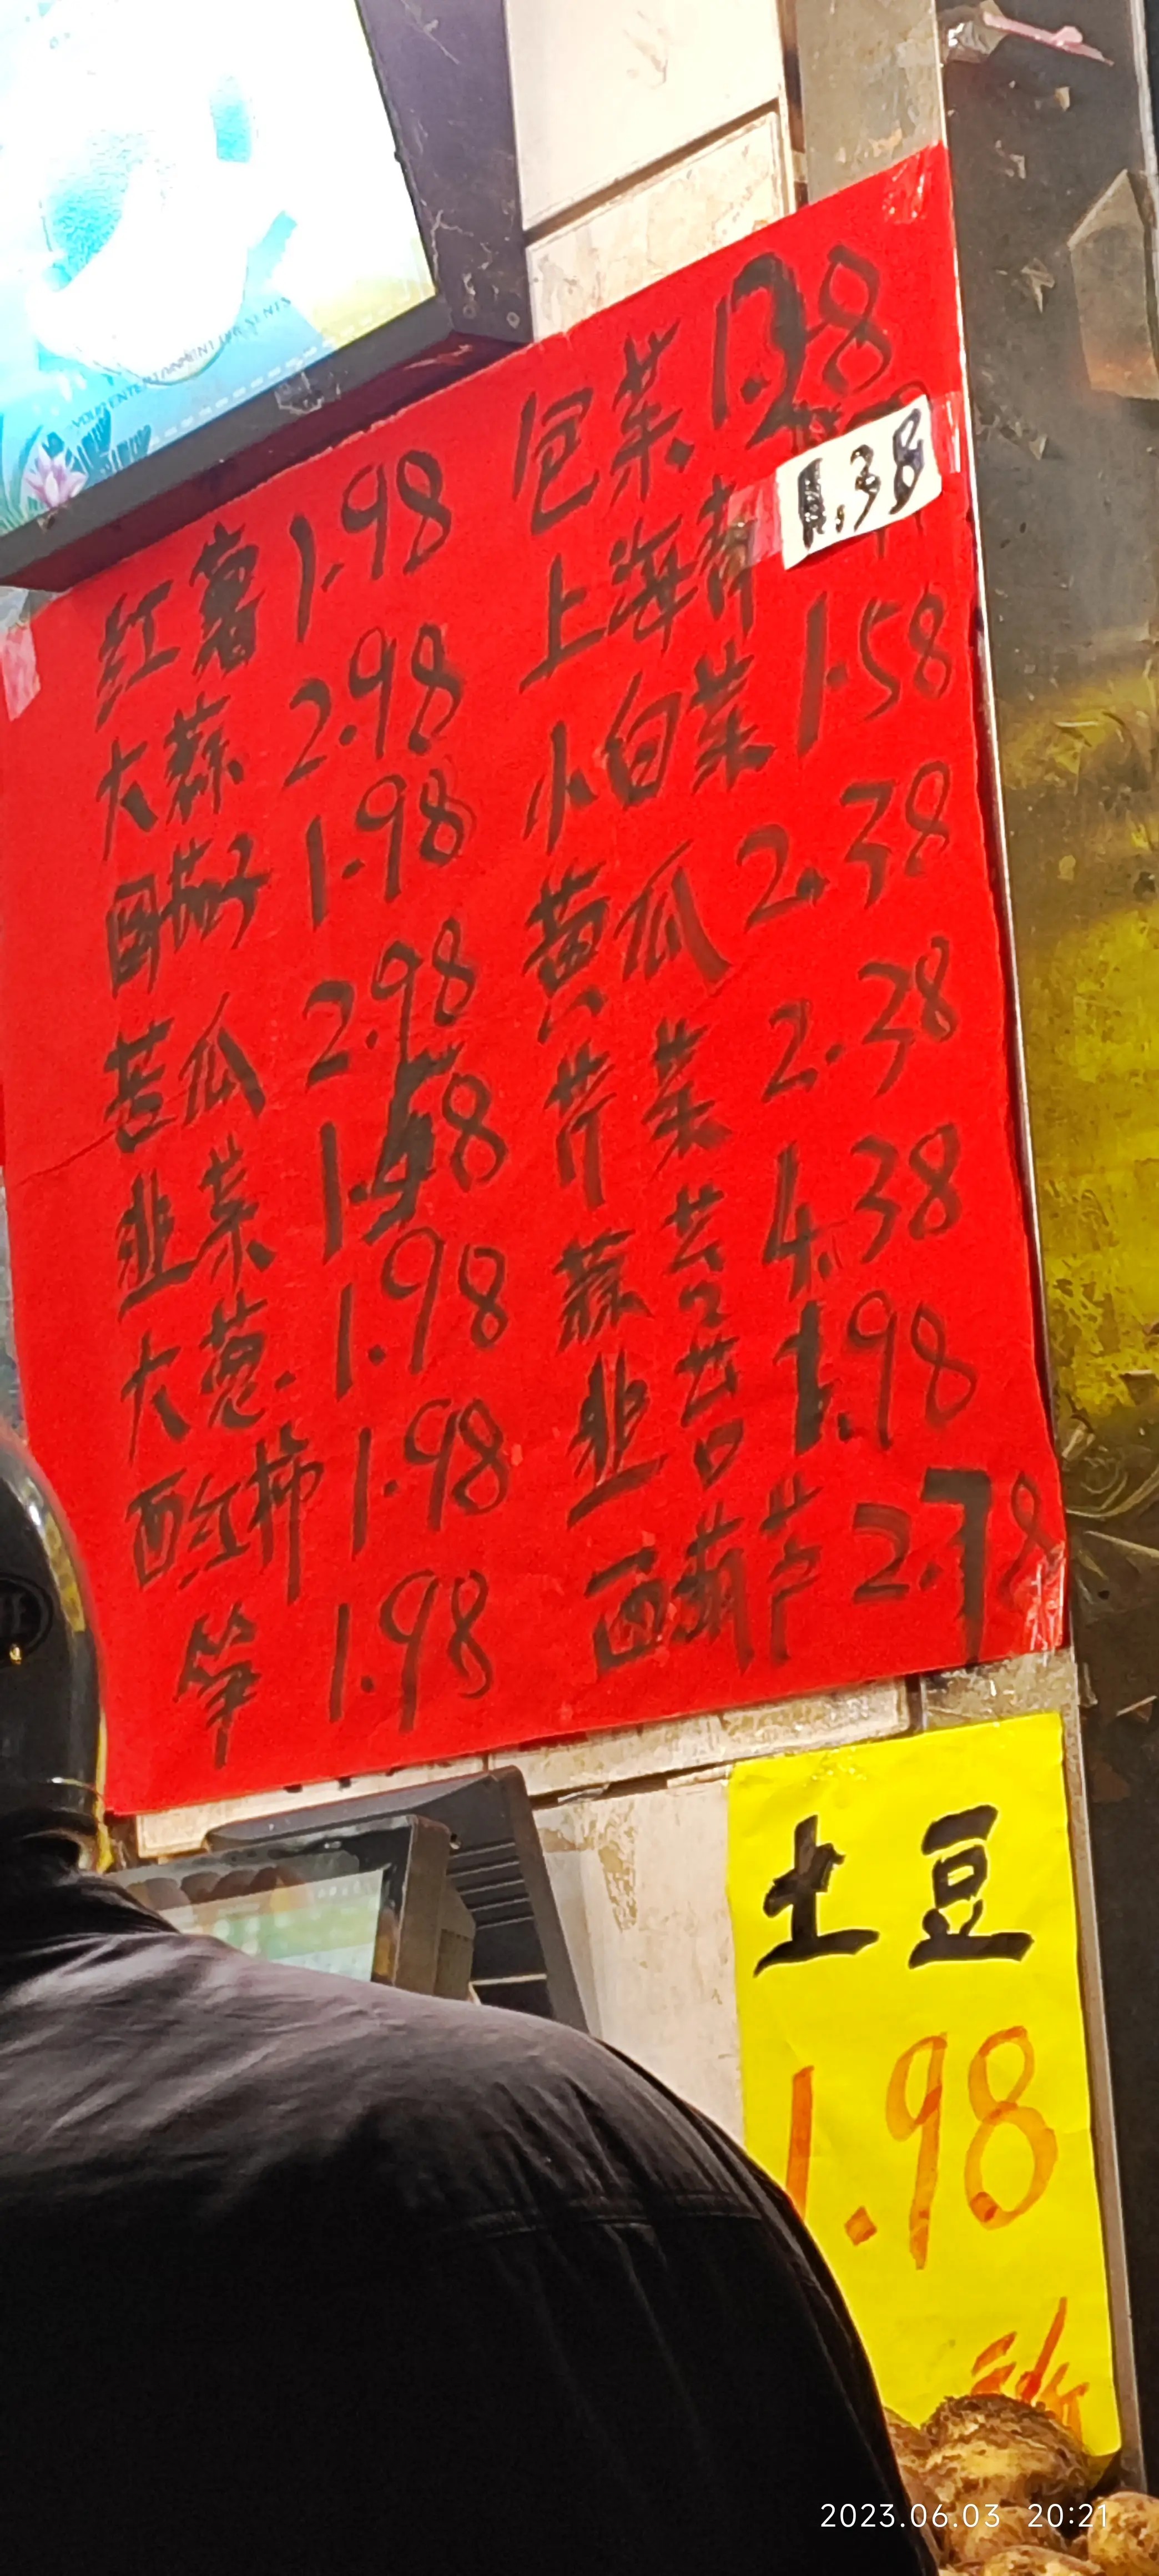 YOUR ENTERTAINMENT
红薯 1.98
大蒜 2.98
圆茄子 1.98
苦瓜 2.98
韭菜 1.58
大葱 1.98
西红柿 1.98
笋 1.98
包菜 1.28
上海青 1.38
小白菜 1.58
黄瓜 2.38
芹菜 2.38
蒜苔 4.38
韭苔 1.98
西葫芦 2.78
土豆
1.98
2023.06.03 20:21